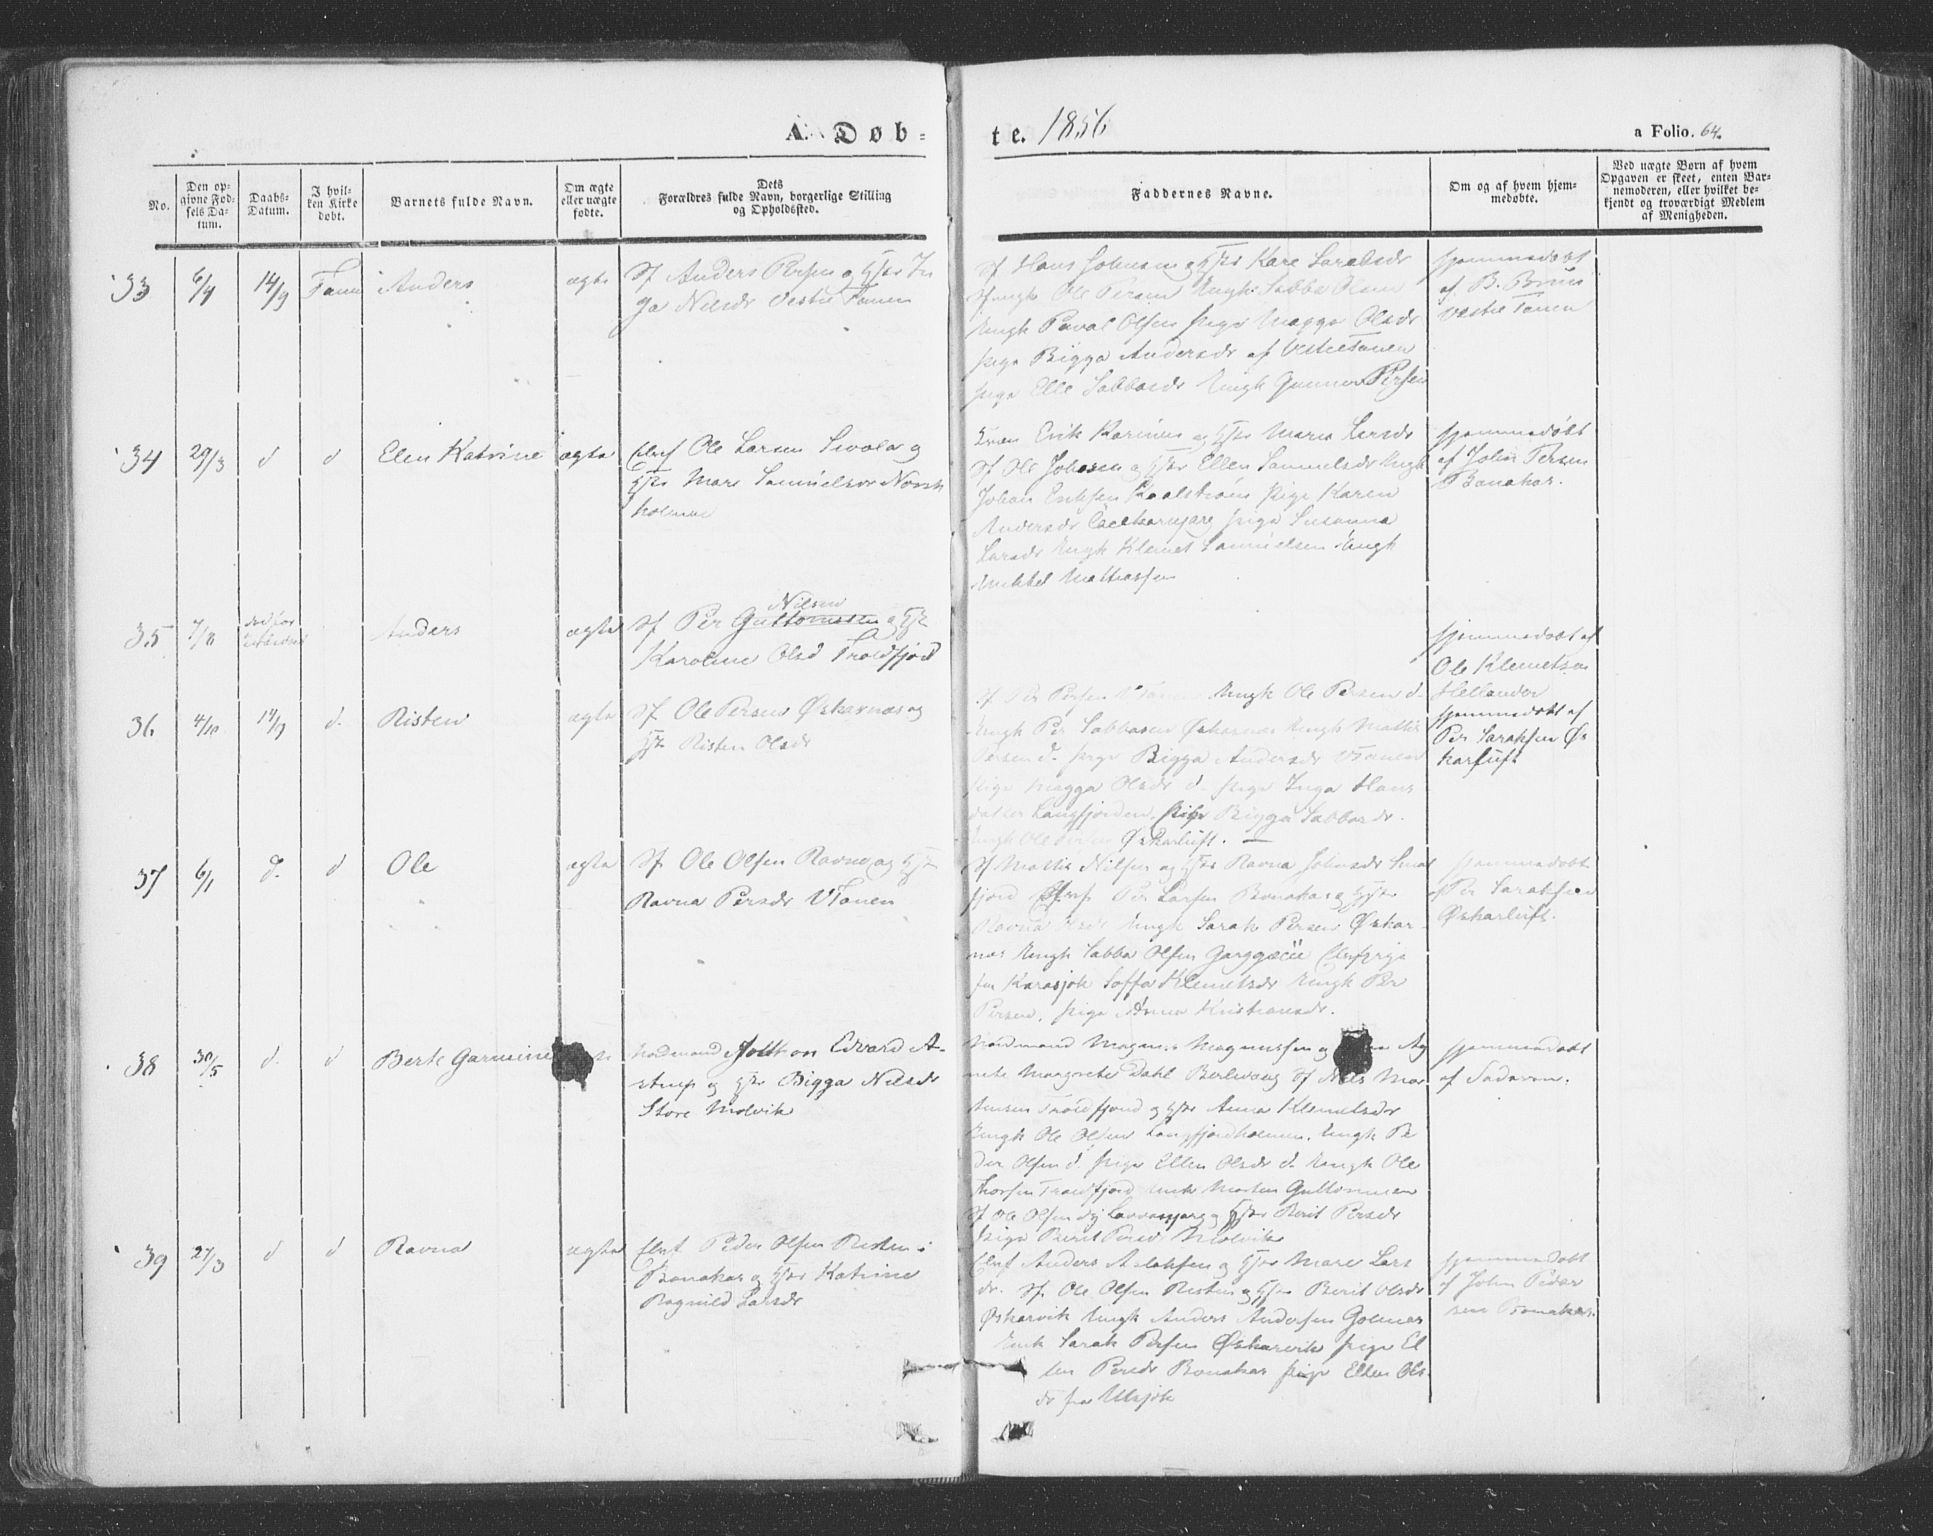 A. Døb-
te. 1856
a Folio. 64.
No.
Den op-
givne Fød-
sels Da-
tum.
Daabs-
Datum.
I hvil-
ken Kirke
døbt.
Barnets fulde Navn.
Om ægte
eller uægte
fødte.
Dets
Forældres fulde Navn, borgerlige Stilling
og Opholdssted.
Faddernes Navne.
Om og af hvem hjem-
medøbte.
Ved uægte Børn af hvem
Opgaven er skeet, enten Bar-
nemoderen, eller hvilket be-
kjendt og troværdigt Medlem
af Menigheden.
33 6/4 14/9 Tanen Anders ægte
Sf Anders Persen og Hstr In
ga Nilsdr Vestre Tanen
Sf Hans Johnsen og Hstr Kare Saralsdr
Ole Persen Ungk Sabba Olsen
Ungk Paval Olsen pige Magga Olsdr
pige Bigga Andersdr af Vestretanen
pige Elle Sabbasdr Ungk Gunner Persen
hjemmedøbt
af B. Bruus
Vestre Tanen
34 29/3 d d Elen Katrine ægte
Ole Larsen og
Hstr Mare Samuelsdr Norsk
holmen
Erik Karinus og Hstr Maria Larsdr
Sf Ole Johnsen og Hstr Ellen Samuelsdr Ungk
Johan Eriksen pige Karen
Andersdr pige Susanna
Larsdr Ungk Klemet Samuelsen Ungk
Mikkel Mathiassen
hjemmedøbt
af John Persen
Bonakas.
35 7/8 død før Anders ægte
Nilsen
Sf Per Guttormsen og Hst
Karoline Olsd Troldfjord
hjemmedøbt af
Ole Klemetsen
Hellander
36 4/10 14/9 d. Risten ægte
Sf Ole Persen Øskarnæs og
Hstr Risten Olsdr
Sf Per Persen V Tanen Ungk Ole Persen d.
Ungk Per Sabbasen Øskarnæs Ungk Mathis
Persen d. pige Bigga Andersdr VTanen
pige Magga Olsdr d. pige Inga Hans
datter Langfjorden. pige Bigga Sabbasdr.
Ungk Ole Persen Øskarluft.
hjemmedøbt af
Per Saraksen Øs
karluft
37 6/1 d. d Ole ægte
Sf Ole Olsen Ravna og Hstr
Ravna Persdr VTanen
Sf Mathis Nilsen og Hstr Ravna Johnsdr Smal
fjord Per Larsen Bonakas og Hstr
Ravna Olsdr Ungk Sarak Persen Øskar-
næs Ungk Sabba Olsen
Karasjok Soffa Klemetsdr Ungk Per
Persen, pige Anna Kristiansdr.
hjemmedøbt
af Per Saraksen
Øskarluft.
38 30/5 d. d Berk Garmine
Nordmand Edvard A-
strup og Hstr Bigga Nilsdr
Store Molvik
Nordmand Magnus Magnussen og Ag
nete Margrete Dahl Berlevaag Sf Nils Mor
tensen Troldfjord og Hstr Anna Klemetsdr
Ungk Ole Olsen Langfjordholmen. Ungk Pe
der Olsen d. pige Ellen Olsdr d. Ungk Ole
Thorsen Troldfjord Ungk Morten Guttormsen
Sf Ole Olsen og Hstr Berit Persdr
pige Berit Persd Molvik
hjemmedøbt
af
39 27/3 d d Ravna ægte
Elvf Peder Olsen Risten i
Bonakas og Hstr Katrine
Ragnild Larsdr
Elvf Anders Aslaksen og Hstr Mare Lars
dr. Sf Ole Olsen Risten og Hstr Berit Olsdr
Øskarvik Ungk Anders Andersen Golnes
Ungk Sarak Persen Øskarvik pige El
len Persdr Bonakas pige Ellen Ols-
dr fra Utsjok
hjemmedøbt
af John Peder
sen Bonakas.